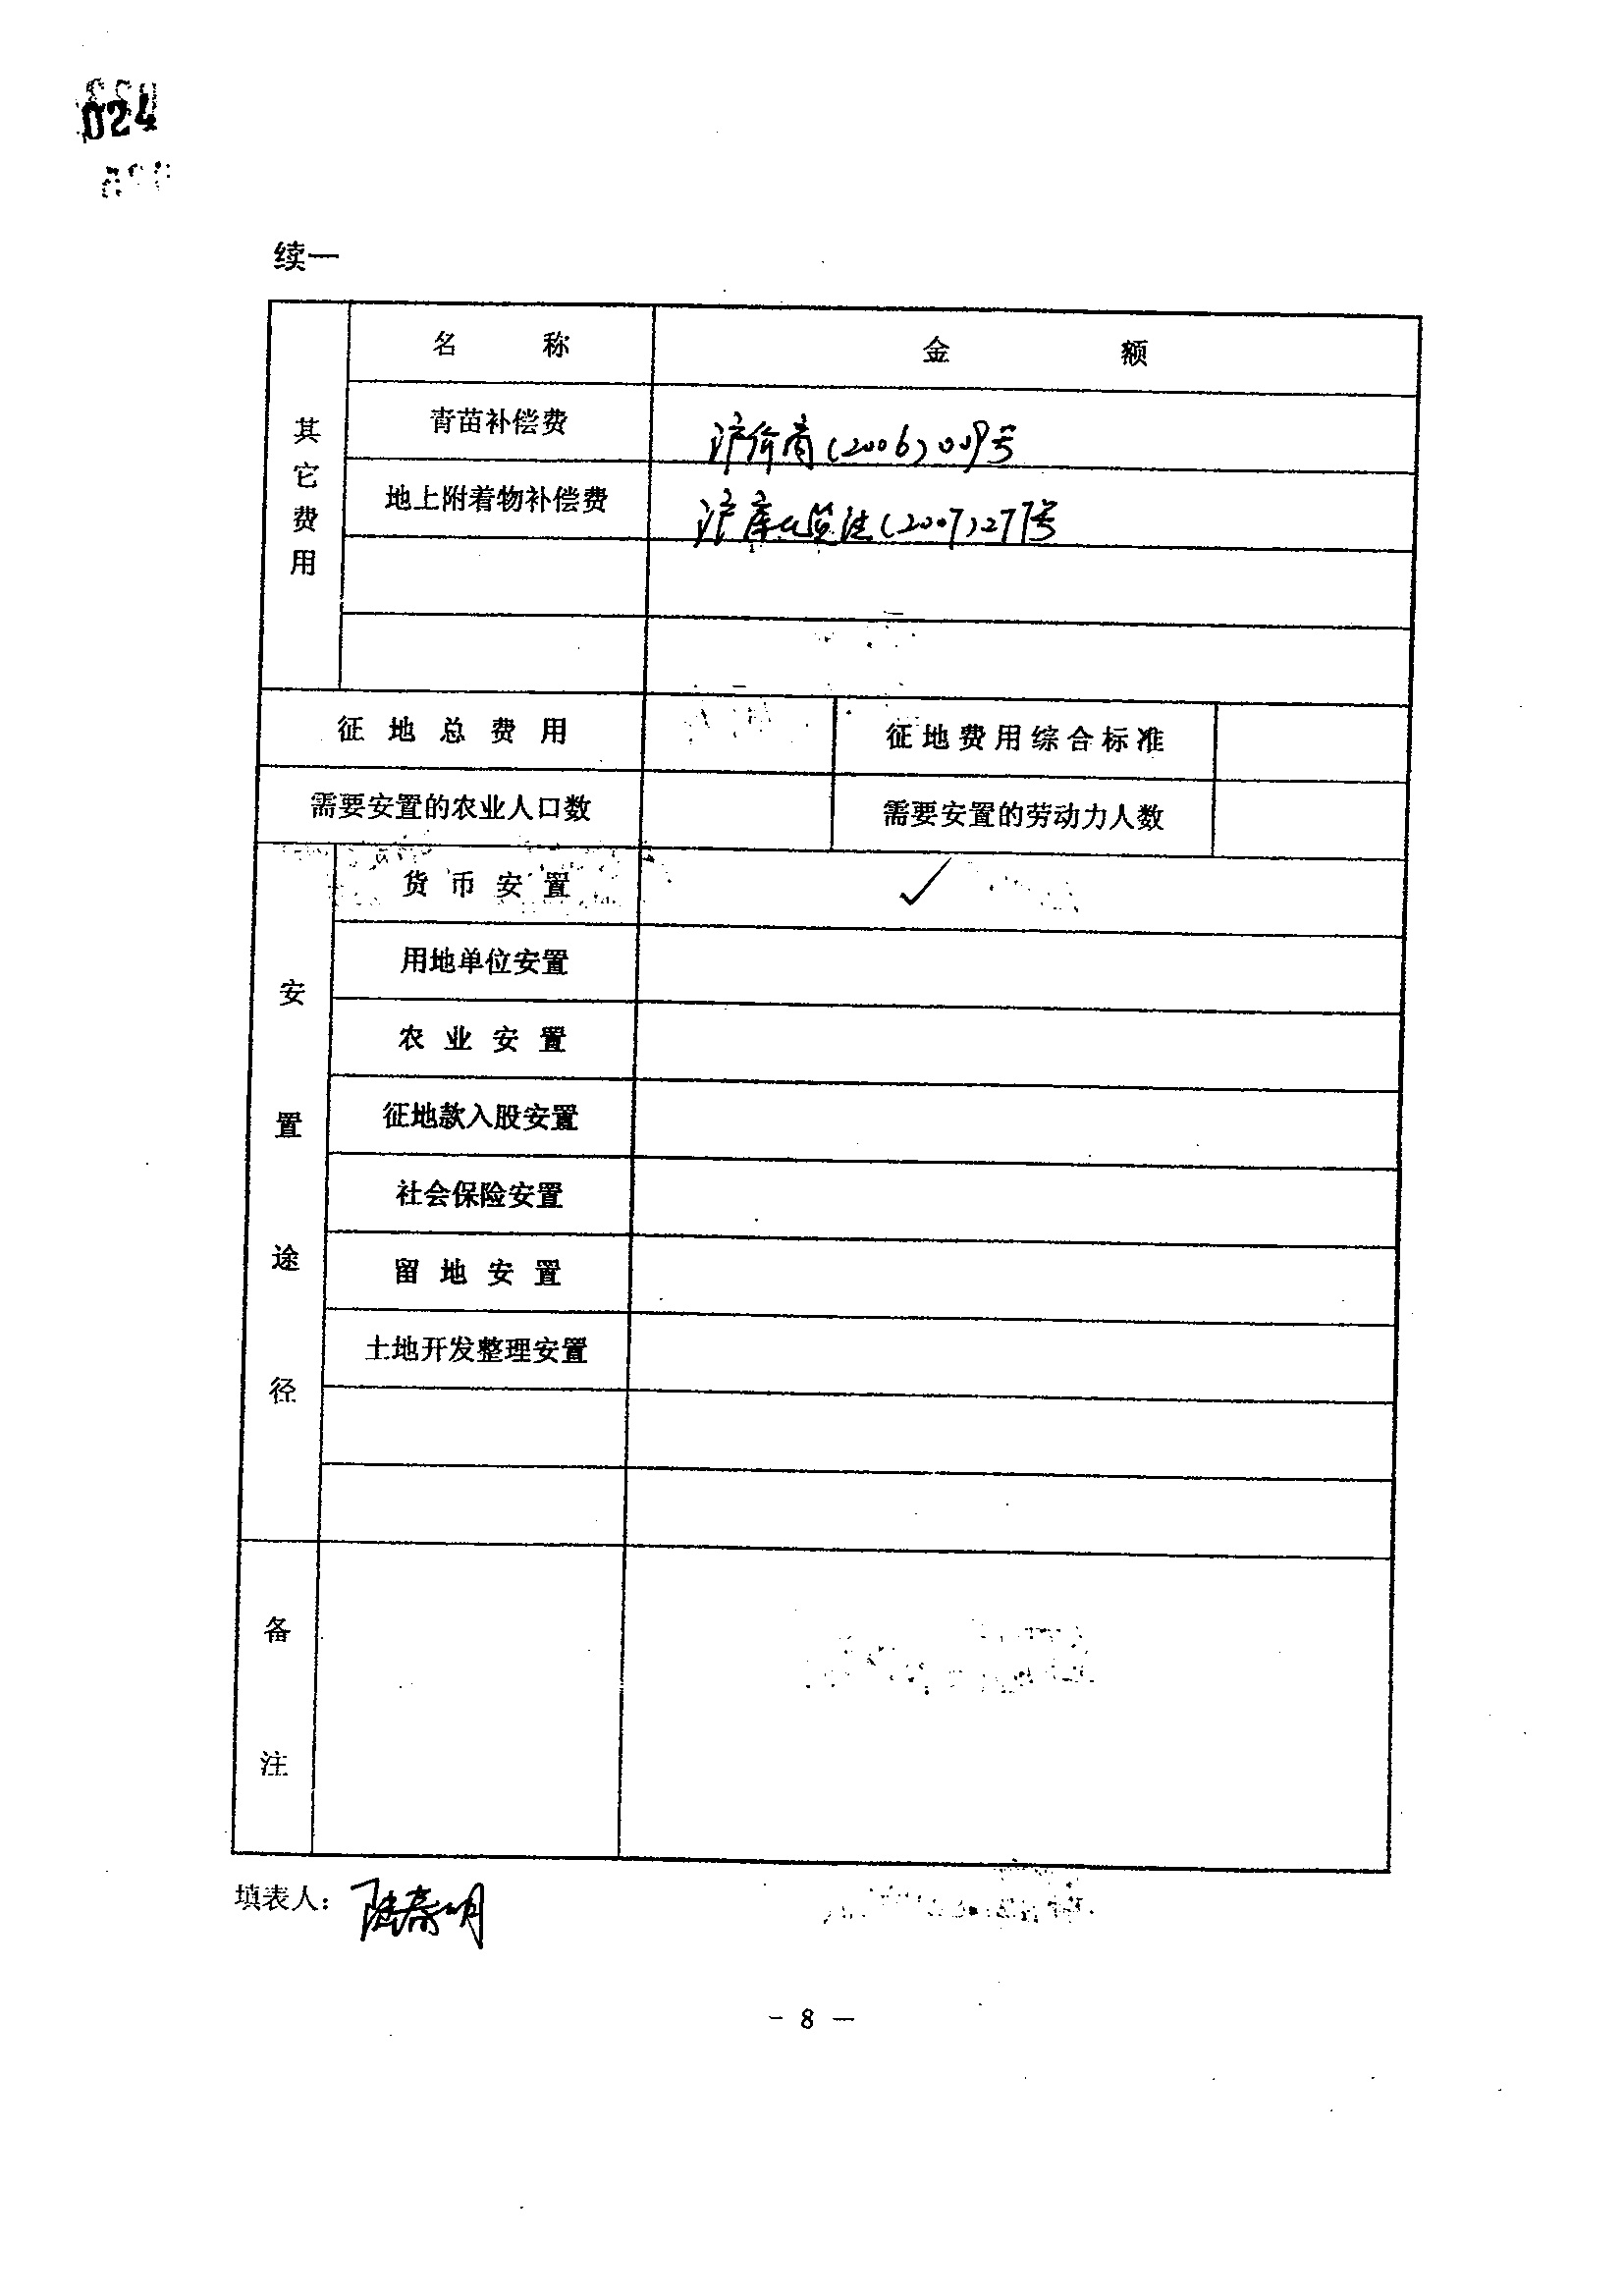 024
续一
名 称 金 额
其它费用
青苗补偿费 沪价商(2006)009号
地上附着物补偿费 沪房地资法(2007)277号
征地总费用 征地费用综合标准
需要安置的农业人口数 需要安置的劳动力人数
安置途径
货币安置 ✓
用地单位安置
农业安置
征地款入股安置
社会保险安置
留地安置
土地开发整理安置
备注
填表人：
- 8 -